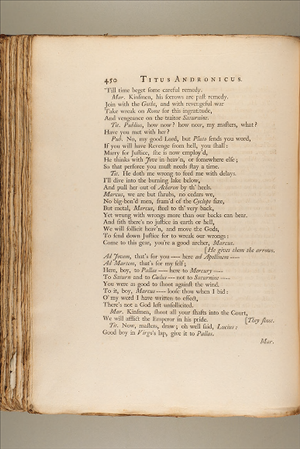 450 TITUS ANDRONICUS.
'Till time beget some careful remedy.
Mar. Kinsmen, his sorrows are past remedy.
Join with the Goths, and with revengeful war
Take wreak on Rome for this ingratitude,
And vengeance on the traitor Saturnine.
Tit. Publius, how now? how now, my masters, what?
Have you met with her?
Pub. No, my good Lord, but Pluto sends you word,
If you will have Revenge from hell, you shall:
Marry for Justice, she is now employ'd,
He thinks with Jove in heav'n, or somewhere else;
So that perforce you must needs stay a time.
Tit. He doth me wrong to feed me with delays.
I'll dive into the burning lake below,
And pull her out of Acheron by th' heels.
Marcus, we are but shrubs, no cedars we,
No big-bon'd men, fram'd of the Cyclops size,
But metal, Marcus, steel to th' very back,
Yet wrung with wrongs more than our backs can bear.
And sith there's no justice in earth or hell,
We will sollicit heav'n, and move the Gods,
To send down Justice for to wreak our wrongs:
Come to this gear, you're a good archer, Marcus.
[He gives them the arrows.
Ad Jovem, that's for you — here ad Apollinem —
Ad Martem, that's for my self;
Here, boy, to Pallas — here to Mercury —
To Saturn and to Cœlus — not to Saturnine —
You were as good to shoot against the wind.
To it, boy, Marcus — loose thou when I bid:
O' my word I have written to effect,
There's not a God left unsollicited.
Mar. Kinsmen, shoot all your shafts into the Court,
We will afflict the Emperor in his pride. [They shoot.
Tit. Now, masters, draw; oh well said, Lucius:
Good boy in Virgo's lap, give it to Pallas.
Mar.